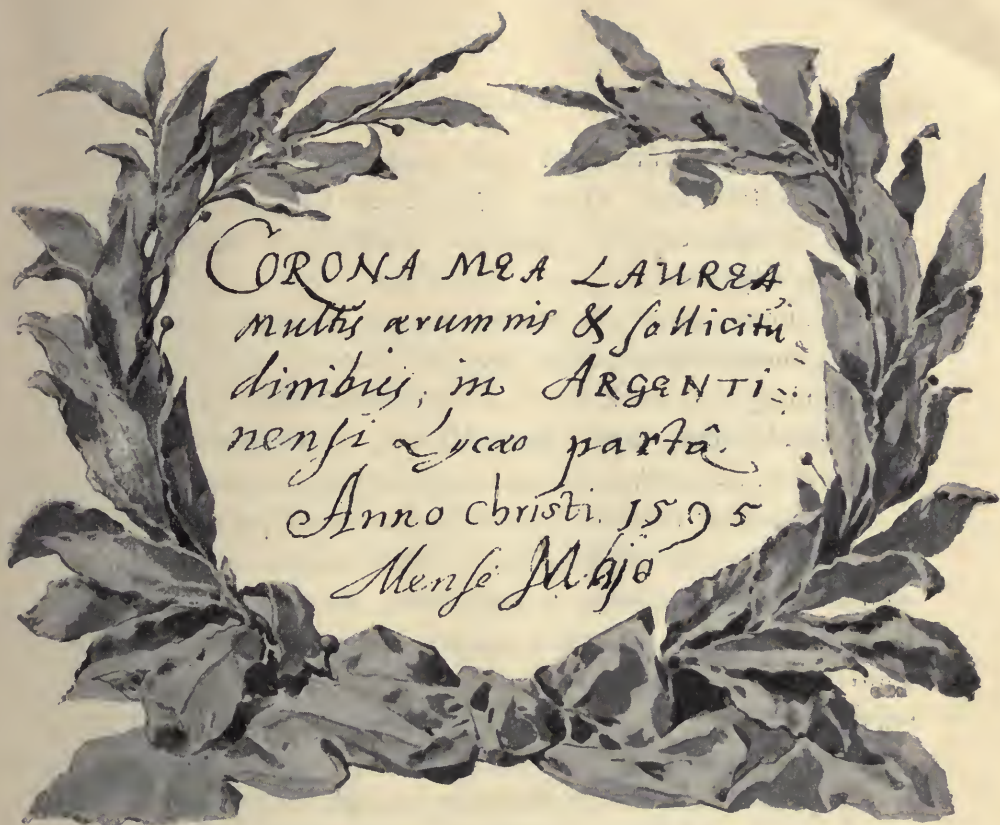 CORONA MEA LAUREA,
multis ærumnis & sollicitu
dinibus, in ARGENTI
nensi Lycæo partâ
Anno Christi 1595
Mense Majo